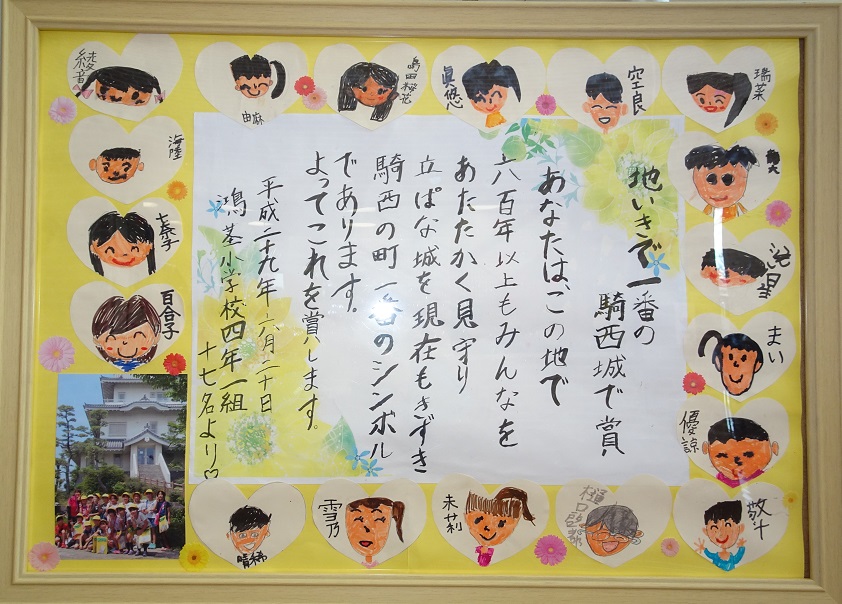 地いきで一番の
騎西城で賞
あなたは、この地で
六百年以上もみんなを
あたたかく見守り
立ぱな城を現在もきずき
騎西の町一番のシンボル
であります。
よってこれを賞します。
平成二十九年六月二十日
鴻茎小学校四年一組
十七名より♡
瑞菜
空良
眞悠
嶋田桜花
由麻
綾音
海陸
百合子
まい
優諒
敬斗
未莉
雪乃
晴稀